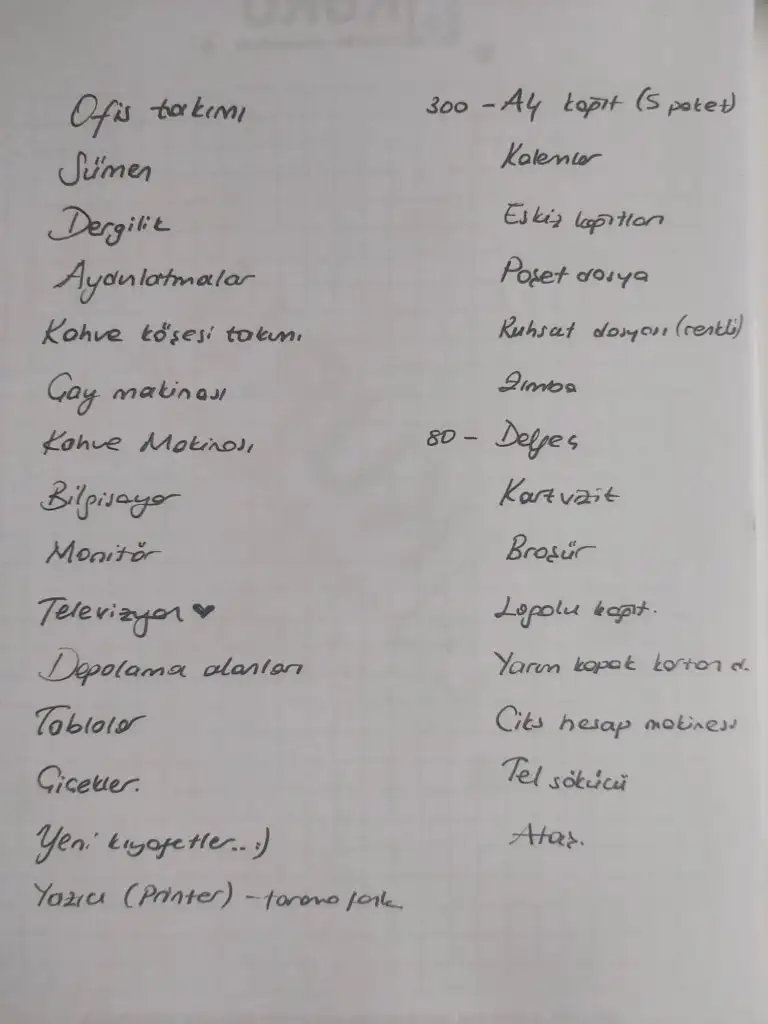 Ofis takımı
Sümen
Dergilik
Aydınlatmalar
Kahve köşesi takımı
Çay makinası
Kahve Makinası
Bilgisayar
Monitör
Televizyon ♥
Depolama alanları
Tablolar
Çiçekler.
Yeni kıyafetler.. :)
Yazıcı (Printer) - tarama fonk.
300 - A4 kağıt (5 paket)
Kalemler
Eskiz kağıtları
Poşet dosya
Ruhsat dosyası (renkli)
Zımba
80 - Delgeç
Kartvizit
Broşür
Logolu kağıt.
Yarım kapak karton d.
Cits hesap makinesi
Tel sökücü
Ataş.